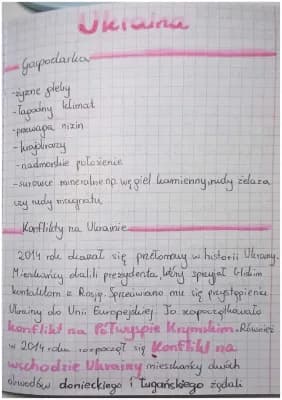 Ukraina
Gospodarka
-żyzne gleby
-łagodny klimat
-przewaga nizin
-krajobrazy
-nadmorskie położenie
-surowce mineralne np. węgiel kamienny, rudy żelaza
czy rudy manganu
Konflikty na Ukrainie
2014 rok okazał się przełomowy w historii Ukrainy.
Mieszkańcy obalili prezydenta, który sprzyjał bliskim
kontaktom z Rosją. Sprzeciwiano mu się przystąpieniu
Ukrainy do Unii Europejskiej. To zapoczątkowało
konflikt na Półwyspie Krymskim. Również
w 2014 roku rozpoczął się konflikt na
wschodzie Ukrainy mieszkańcy dwóch
obwodów donieckiego i ługańskiego żądali